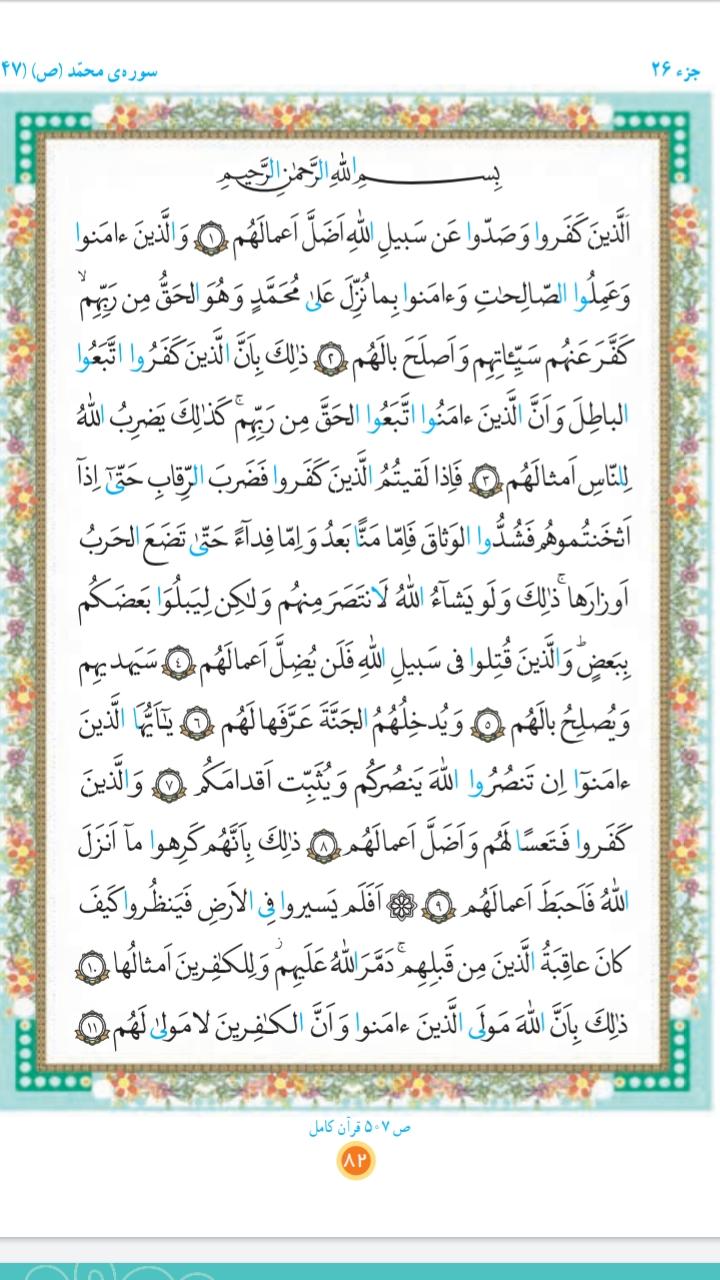 جزء ۲۶
سوره‌ی محمّد (ص) (۴۷
بِسـمِ اللهِ الرَّحمٰنِ الرَّحیمِ
اَلَّذینَ کَفَروا وَ صَدّوا عَن سَبیلِ اللهِ اَضَلَّ اَعمالَهُم ۱ وَ الَّذینَ ءامَنوا
وَ عَمِلُوا الصّالِحٰتِ وَ ءامَنوا بِما نُزِّلَ عَلیٰ مُحَمَّدٍ وَ هُوَ الحَقُّ مِن رَبِّهِم ۙ
کَفَّرَ عَنهُم سَیِّـٔاتِهِم وَ اَصلَحَ بالَهُم ۲ ذٰلِکَ بِاَنَّ الَّذینَ کَفَرُوا اتَّبَعُوا
الباطِلَ وَ اَنَّ الَّذینَ ءامَنُوا اتَّبَعُوا الحَقَّ مِن رَبِّهِم ۚ کَذٰلِکَ یَضرِبُ اللهُ
لِلنّاسِ اَمثالَهُم ۳ فَاِذا لَقیتُمُ الَّذینَ کَفَروا فَضَربَ الرِّقابِ حَتّیٰٓ اِذآ
اَثخَنتُموهُم فَشُدُّوا الوَثاقَ فَاِمّا مَنًّا بَعدُ وَ اِمّا فِدآءً حَتّیٰ تَضَعَ الحَربُ
اَوزارَها ۚ ذٰلِکَ وَ لَو یَشآءُ اللهُ لَانتَصَرَ مِنهُم وَ لٰکِن لِیَبلُوَا بَعضَکُم
بِبَعضٍ ؕ وَ الَّذینَ قُتِلوا فی سَبیلِ اللهِ فَلَن یُضِلَّ اَعمالَهُم ۴ سَیَهدیهِم
وَ یُصلِحُ بالَهُم ۵ وَ یُدخِلُهُمُ الجَنَّةَ عَرَّفَها لَهُم ۶ یٰٓاَیُّهَا الَّذینَ
ءامَنوٓا اِن تَنصُرُوا اللهَ یَنصُرکُم وَ یُثَبِّت اَقدامَکُم ۷ وَ الَّذینَ
کَفَروا فَتَعسًا لَهُم وَ اَضَلَّ اَعمالَهُم ۸ ذٰلِکَ بِاَنَّهُم کَرِهوا مآ اَنزَلَ
اللهُ فَاَحبَطَ اَعمالَهُم ۹ ۞ اَفَلَم یَسیروا فِی الاَرضِ فَیَنظُروا کَیفَ
کانَ عاقِبَةُ الَّذینَ مِن قَبلِهِم ۚ دَمَّرَ اللهُ عَلَیهِم ز وَ لِلکٰفِرینَ اَمثالُها ۱۰
ذٰلِکَ بِاَنَّ اللهَ مَولَی الَّذینَ ءامَنوا وَ اَنَّ الکٰفِرینَ لا مَولیٰ لَهُم ۱۱
ص ۵۰۷ قرآن کامل
۸۲